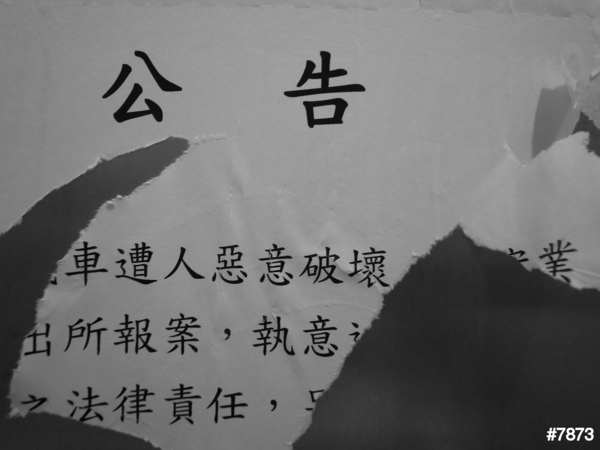 公告
車遭人惡意破壞 業
出所報案，執意
之法律責任，
#7873